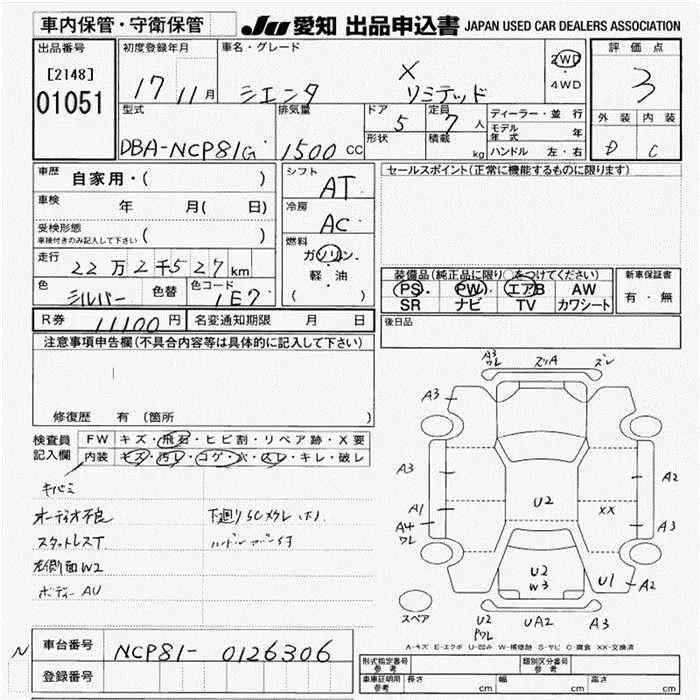 車内保管・守衛保管
JU 愛知 出品申込書 JAPAN USED CAR DEALERS ASSOCIATION
出品番号
[2148]
01051
初度登録年月
17 11月
車名・グレード
シエンタ X リミテッド
2WD
4WD
評価点
3
外装 内装
D C
型式
DBA-NCP81G
排気量
1500 CC
ドア
5
形状
定員
7 人
積載
kg
ディーラー・並行
モデル年式 年
ハンドル 左・右
車歴 自家用・( )
車検 年 月( 日)
受検形態
車検付きのみ記入して下さい ( )
走行 22万2千527km
色 シルバー 色替 色コード 1E7
シフト
AT
冷房
AC
燃料
ガソリン
軽・油
( )
セールスポイント(正常に機能するものに限ります)
装備品(純正品に限り○をつけてください)
PS PW エアB AW
SR ナビ TV カワシート
新車保証書
有・無
R券 11100円 名変通知期限 月 日
後日品
注意事項申告欄(不具合内容等は具体的に記入して下さい)
修復歴 有 (箇所 )
検査員記入欄
FW キズ・飛石・ヒビ割・リペア跡・X要
内装 キズ・汚レ・コゲ・穴・スレ・キレ・破レ
キバミ
オーディオ不良
スタットレスT
左側面W2
ボディーAU
下廻りSCメクレ
A3 ワレ スリA ズレ
A3
A3
A2
U2
XX
A1
A4 ワレ
A3
U2 W3
U1 A2
スペア
U2 ワレ UA2 A3
A-キズ E-エクボ U-凹み W-補修跡 S-サビ C-腐食 XX-交換済
N
車台番号 NCP81-0126306
登録番号
形式指定番号 参考
類別区分番号 参考
車庫証明用 参考 長さ cm 幅 cm 高さ cm